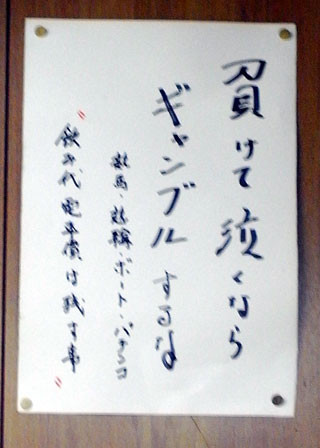 負けて泣くなら
ギャンブルするな
競馬・競輪・ボート・パチンコ
〝飲み代電車賃は残す事〟